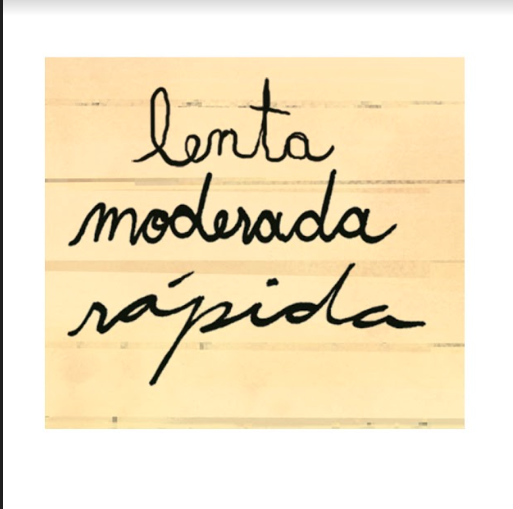 lenta
moderada
rápida